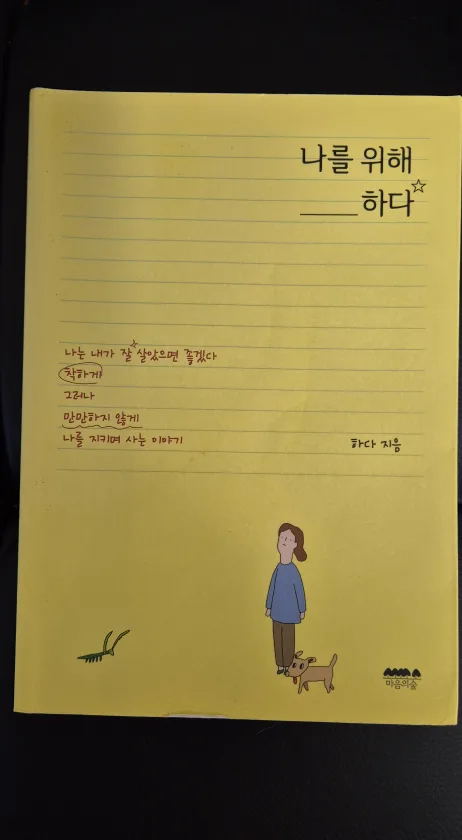 나를 위해
____하다
나는 내가 잘 살았으면 좋겠다
착하게
그러나
만만하지 않게
나를 지키며 사는 이야기
하다 지음
마음의숲